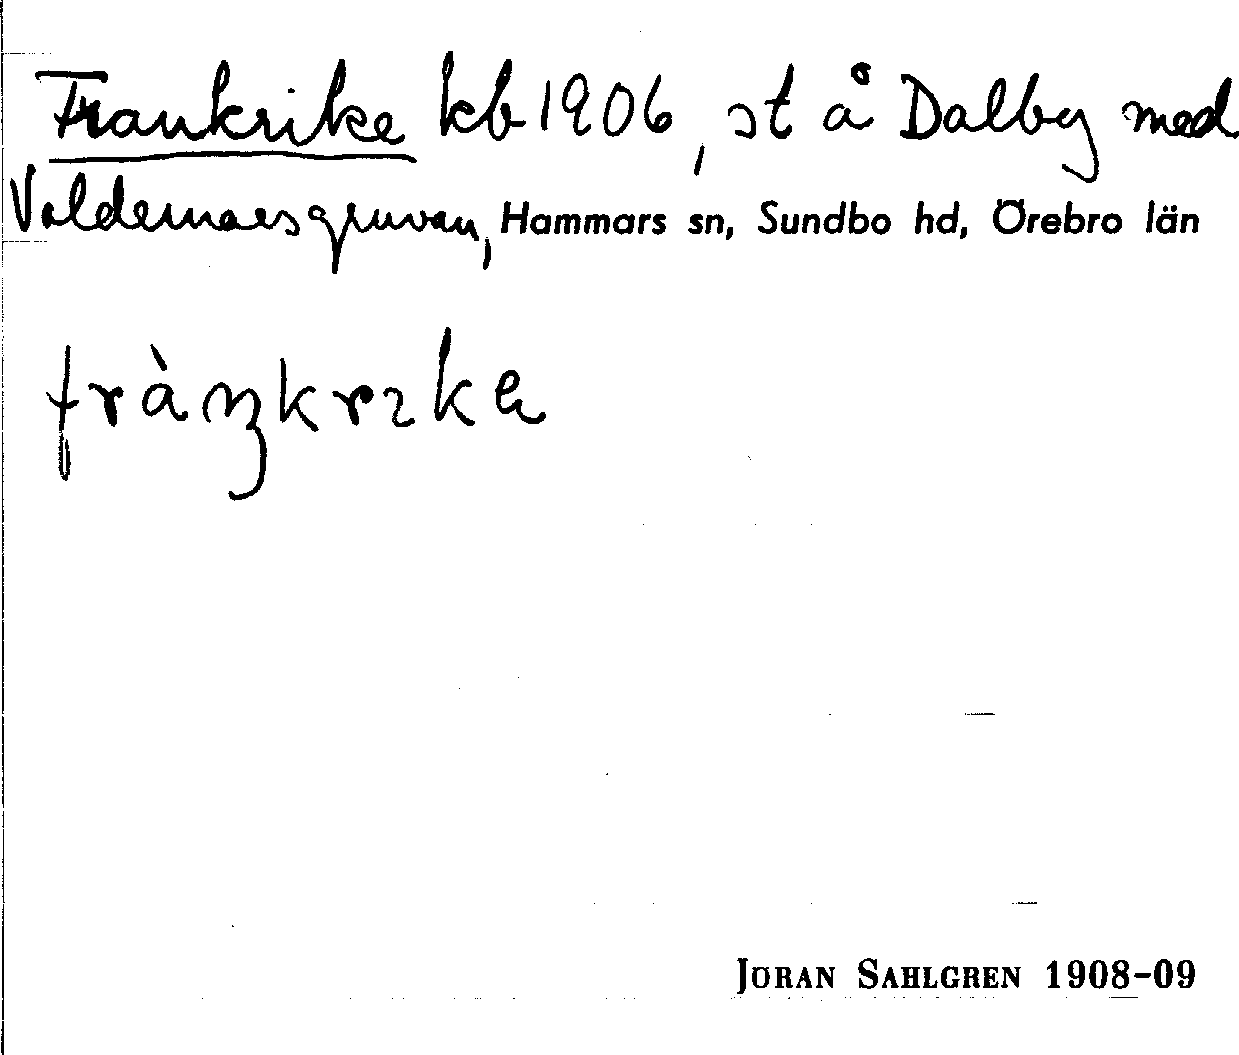 Frankrike kb 1906, st å Dalby med
Valdemarsgruvan, Hammars sn, Sundbo hd, Örebro län
fràŋkrɪka
JÖRAN SAHLGREN 1908-09